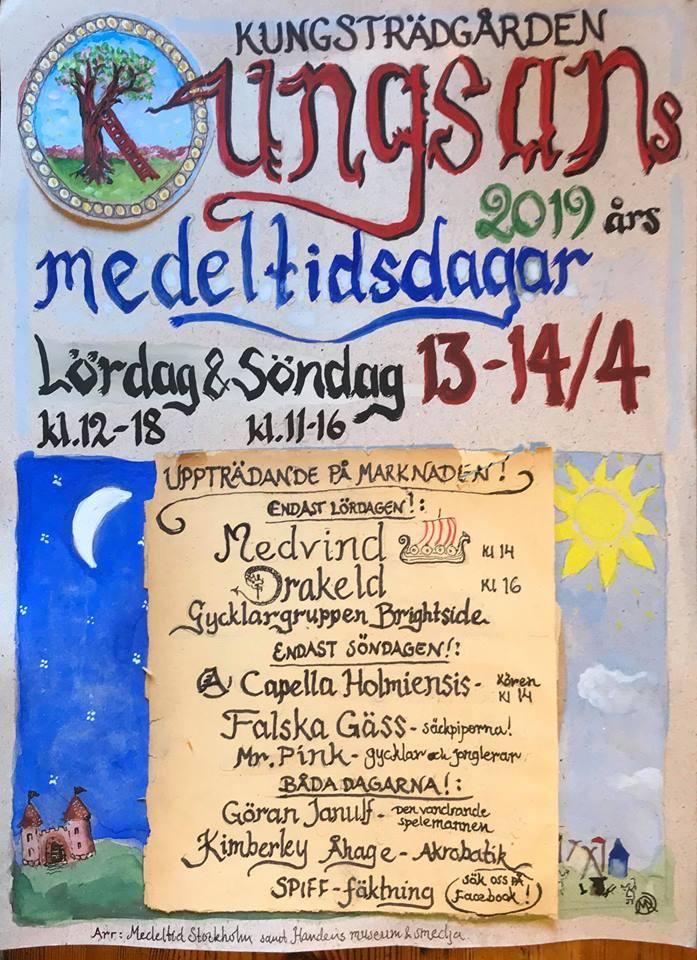 KUNGSTRÄDGÅRDEN
Kungsans
2019 års
medeltidsdagar
Lördag & Söndag 13-14/4
kl.12-18 kl.11-16
UPPTRÄDANDE PÅ MARKNADEN!
ENDAST LÖRDAGEN!:
Medvind kl 14
Drakeld kl 16
Gycklargruppen Brightside
ENDAST SÖNDAGEN!:
A Capella Holmiensis - Kören kl 14
Falska Gäss - säckpiporna!
Mr. Pink - gycklar och jonglerar
BÅDA DAGARNA!:
Göran Janulf - Den vandrande spelemannen
Kimberley Åhage - Akrobatik
SPIFF - fäktning
Sök oss på Facebook!
Arr: Medeltid Stockholm samt Handens museum & smedja.